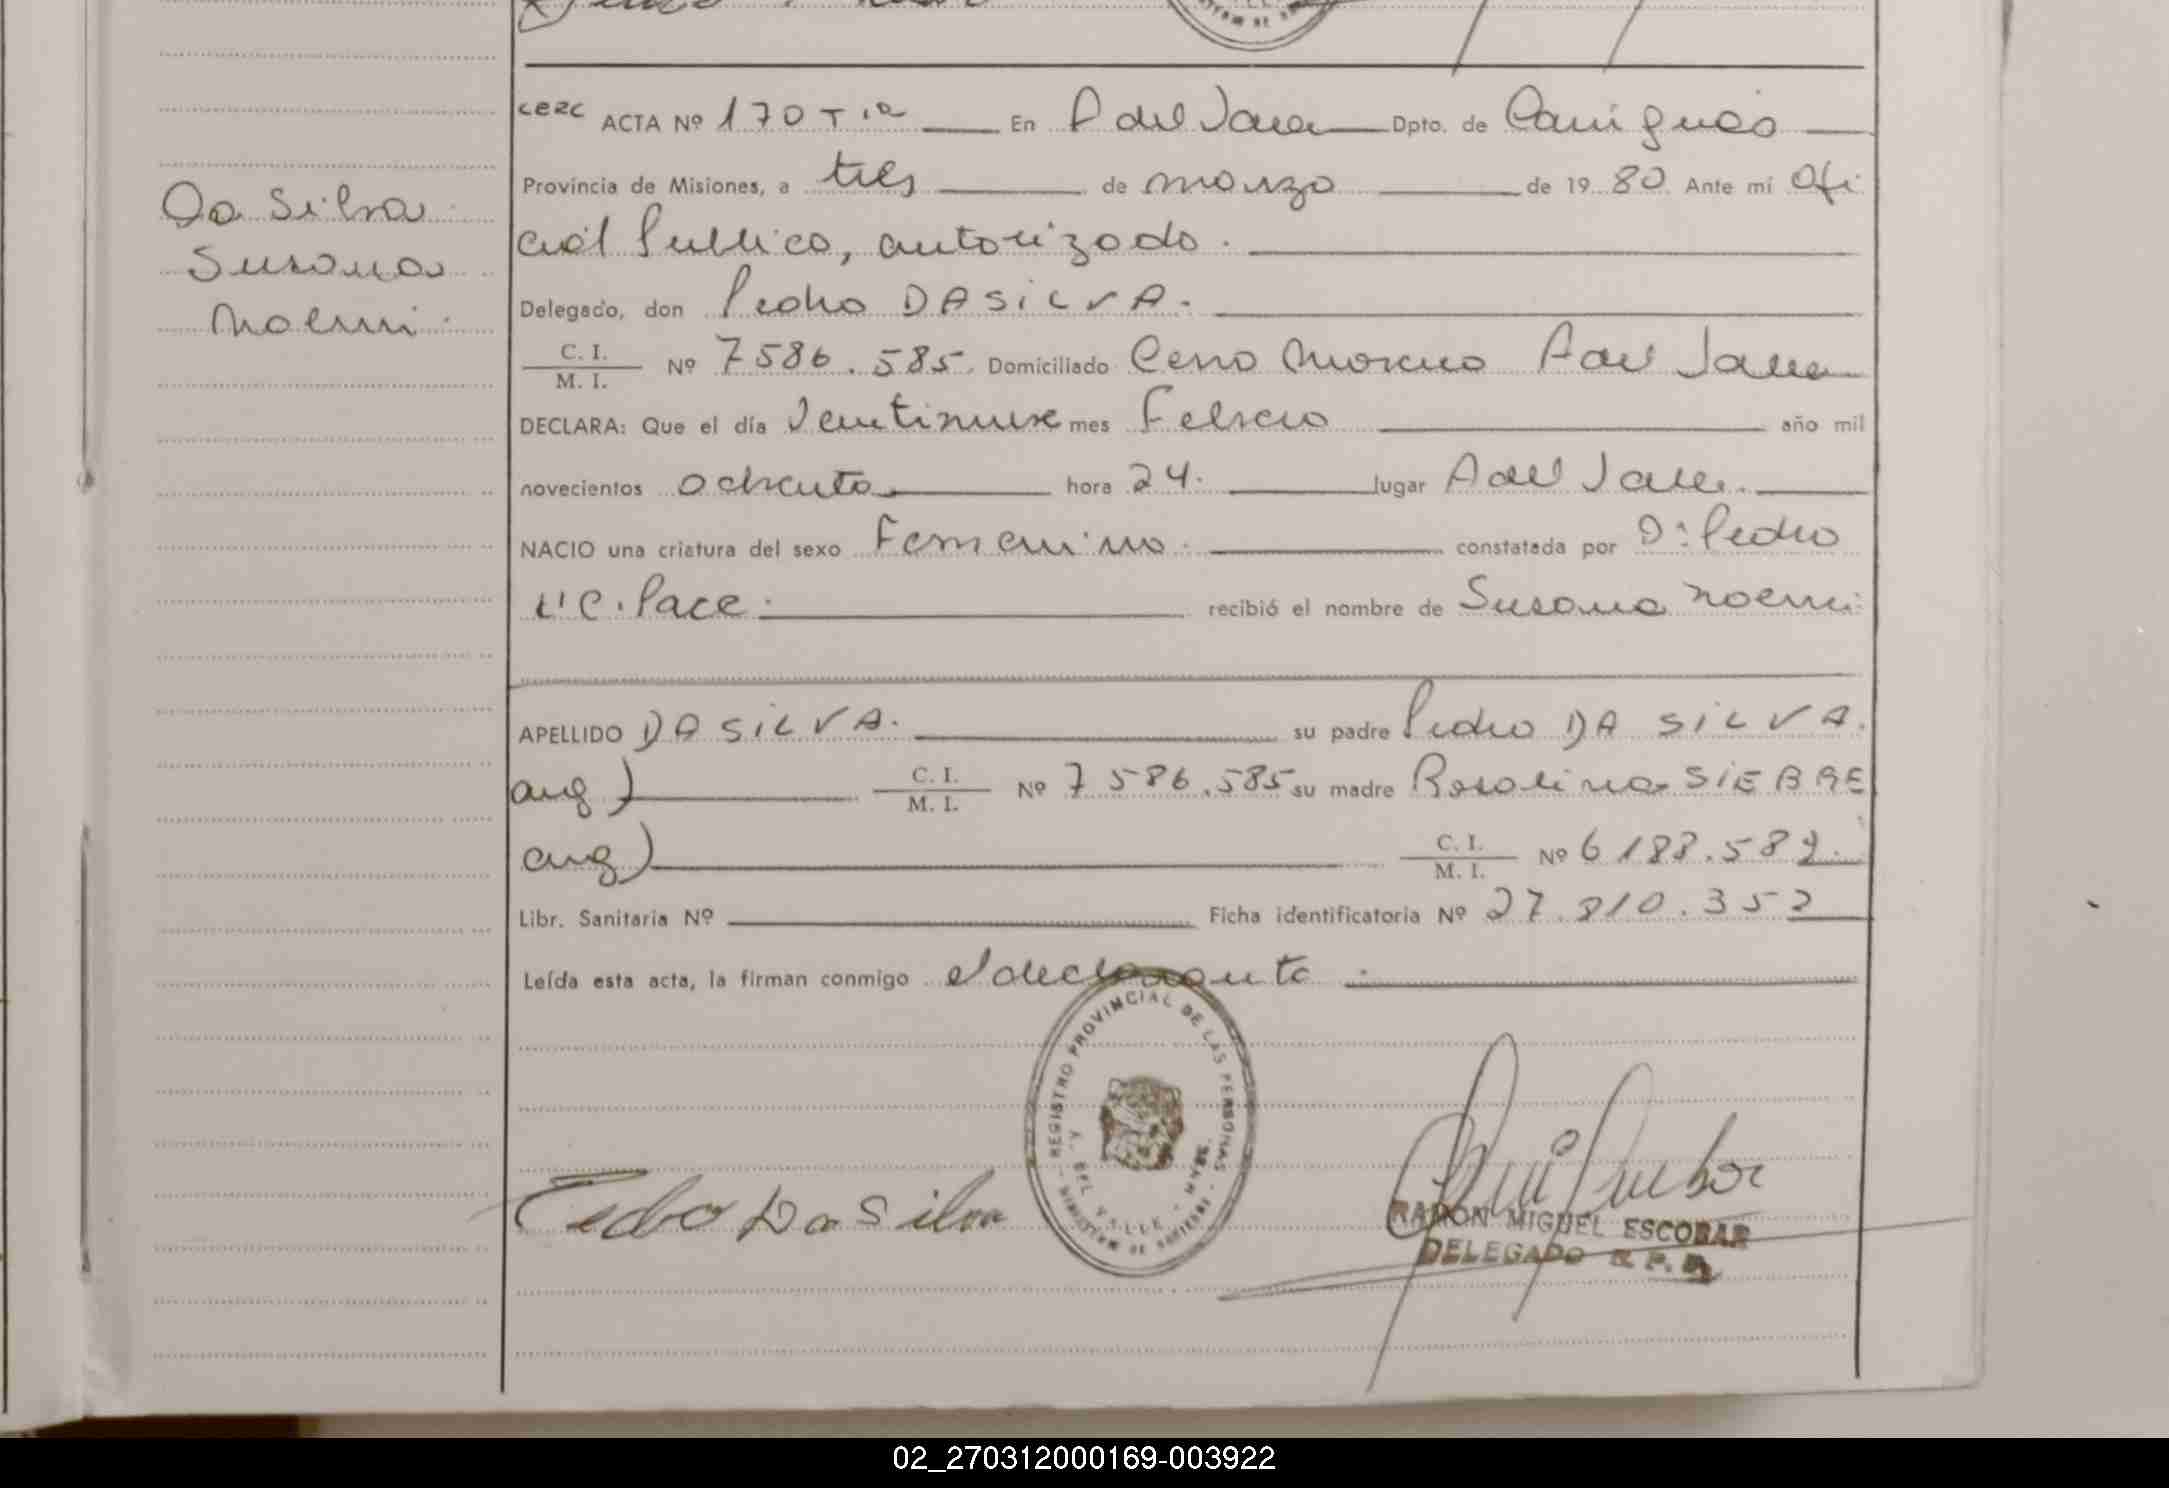 Da Silva
Susana
Noemi.
CERC ACTA Nº 170 T 1a En A del Valle Dpto. de Cainguás
Provincia de Misiones, a tres de marzo de 19 80 Ante mí Ofi
cial Publico, autorizado.
Delegado, don Pedro DA SILVA.
C. I. / M. I. Nº 7586.585 Domiciliado Cerro Moreno A del Valle
DECLARA: Que el día Veintinueve mes Febrero año mil
novecientos ochenta hora 24. lugar A del Valle.
NACIO una criatura del sexo Femenino. constatada por Dr. Pedro
C. Pace. recibió el nombre de Susana Noemi.
APELLIDO DA SILVA. su padre Pedro DA SILVA.
arg) C. I. / M. I. Nº 7586.585 su madre Rosalina SIEBRE
arg) C. I. / M. I. Nº 6188.582.
Libr. Sanitaria Nº Ficha identificatoria Nº 27.810.352
Leída esta acta, la firman conmigo el declarante.
REGISTRO PROVINCIAL DE LAS PERSONAS
DEL VALLE
MINISTERIO DE GOBIERNO
Pedro Da Silva
RAMON MIGUEL ESCOBAR
DELEGADO R. P. P.
02_270312000169-003922